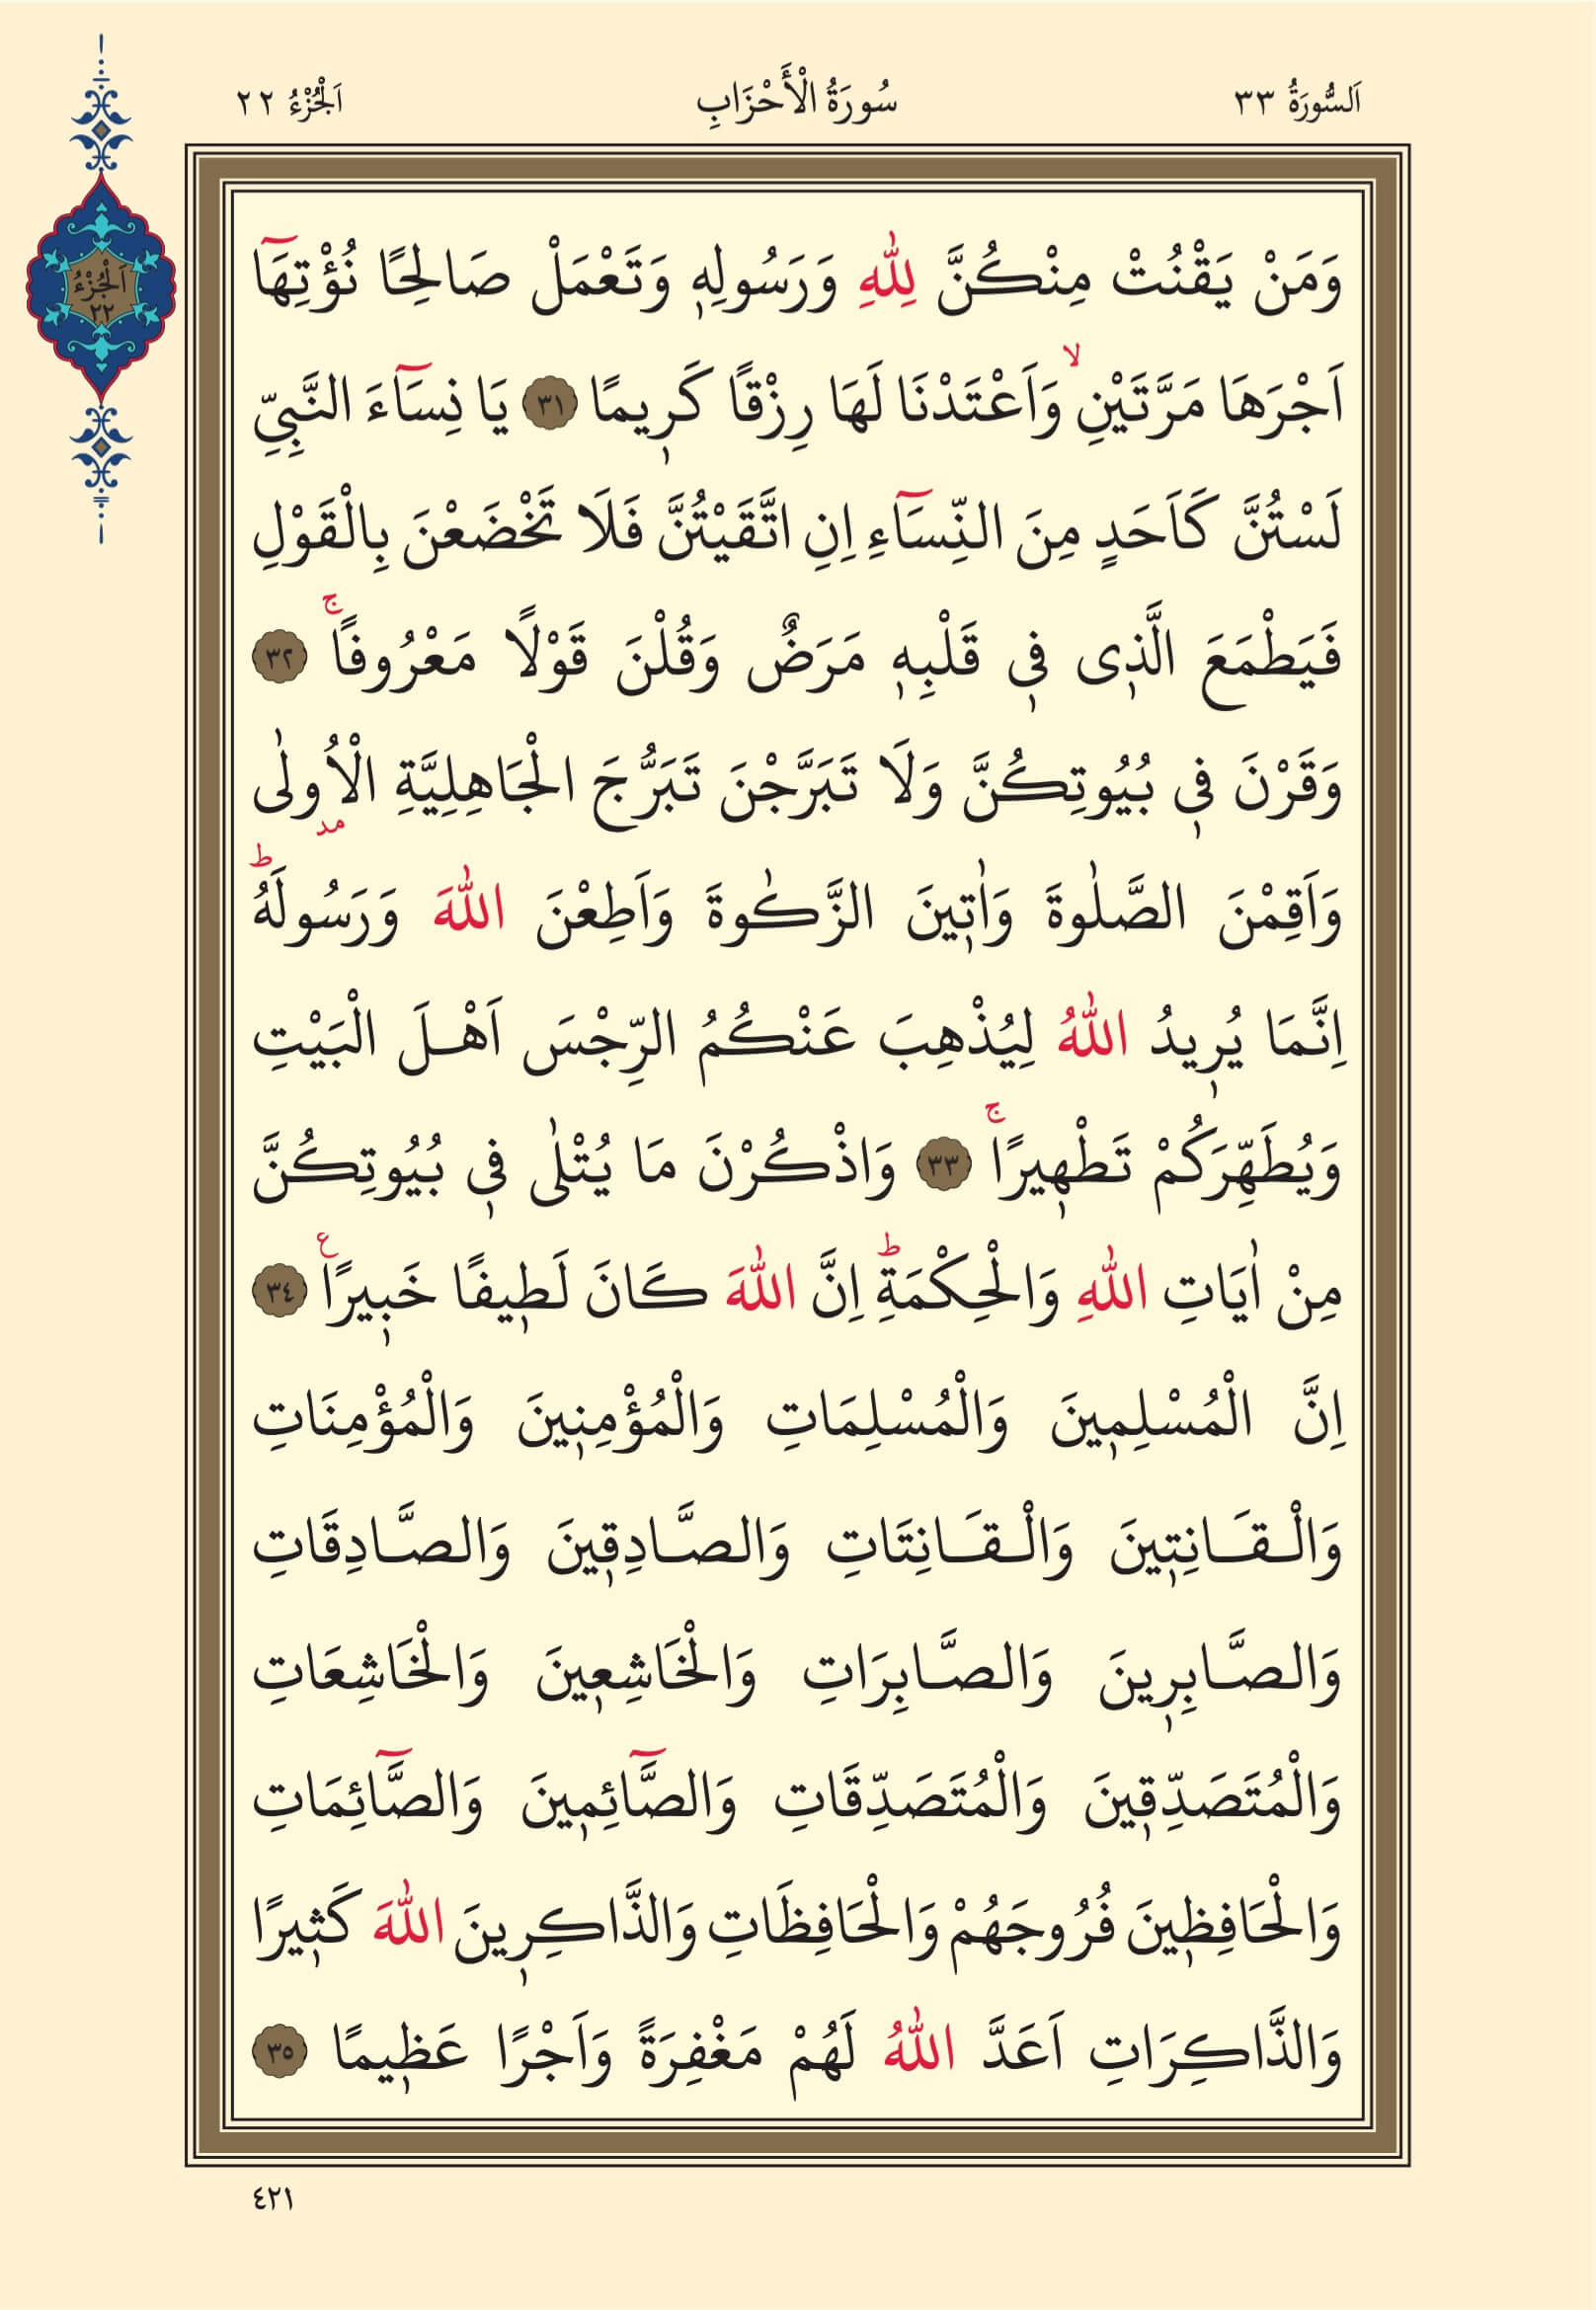 اَلسُّورَةُ ٣٣ سُورَةُ الْأَحْزَابِ اَلْجُزْءُ ٢٢
اَلْجُزْءُ
٢٢
وَمَنْ يَقْنُتْ مِنْكُنَّ لِلّٰهِ وَرَسُولِهٖ وَتَعْمَلْ صَالِحًا نُؤْتِهَٓا
اَجْرَهَا مَرَّتَيْنِۙ وَاَعْتَدْنَا لَهَا رِزْقًا كَرٖيمًا ٣١ يَا نِسَٓاءَ النَّبِيِّ
لَسْتُنَّ كَاَحَدٍ مِنَ النِّسَٓاءِ اِنِ اتَّقَيْتُنَّ فَلَا تَخْضَعْنَ بِالْقَوْلِ
فَيَطْمَعَ الَّذٖى فٖى قَلْبِهٖ مَرَضٌ وَقُلْنَ قَوْلًا مَعْرُوفًاۚ ٣٢
وَقَرْنَ فٖى بُيُوتِكُنَّ وَلَا تَبَرَّجْنَ تَبَرُّجَ الْجَاهِلِيَّةِ الْاُولٰى
وَاَقِمْنَ الصَّلٰوةَ وَاٰتٖينَ الزَّكٰوةَ وَاَطِعْنَ اللّٰهَ وَرَسُولَهُؕ
اِنَّمَا يُرٖيدُ اللّٰهُ لِيُذْهِبَ عَنْكُمُ الرِّجْسَ اَهْلَ الْبَيْتِ
وَيُطَهِّرَكُمْ تَطْهٖيرًاۚ ٣٣ وَاذْكُرْنَ مَا يُتْلٰى فٖى بُيُوتِكُنَّ
مِنْ اٰيَاتِ اللّٰهِ وَالْحِكْمَةِؕ اِنَّ اللّٰهَ كَانَ لَطٖيفًا خَبٖيرًاࣖ ٣٤
اِنَّ الْمُسْلِمٖينَ وَالْمُسْلِمَاتِ وَالْمُؤْمِنٖينَ وَالْمُؤْمِنَاتِ
وَالْقَانِتٖينَ وَالْقَانِتَاتِ وَالصَّادِقٖينَ وَالصَّادِقَاتِ
وَالصَّابِرٖينَ وَالصَّابِرَاتِ وَالْخَاشِعٖينَ وَالْخَاشِعَاتِ
وَالْمُتَصَدِّقٖينَ وَالْمُتَصَدِّقَاتِ وَالصَّٓائِمٖينَ وَالصَّٓائِمَاتِ
وَالْحَافِظٖينَ فُرُوجَهُمْ وَالْحَافِظَاتِ وَالذَّاكِرٖينَ اللّٰهَ كَثٖيرًا
وَالذَّاكِرَاتِ اَعَدَّ اللّٰهُ لَهُمْ مَغْفِرَةً وَاَجْرًا عَظٖيمًا ٣٥
٤٢١